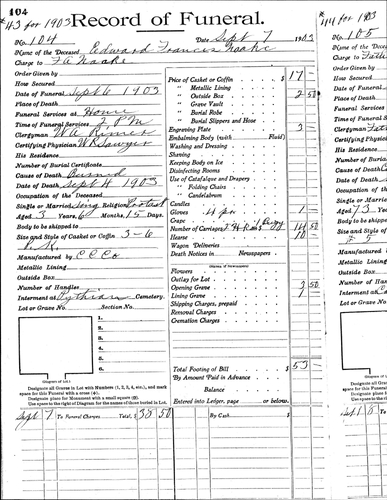 104
#43 for 1903
Record of Funeral.
No. 104 Date Sept 7 1903
Name of the Deceased Edward Francis Noake
Charge to F A Noake
Order Given by
How Secured
Date of Funeral Sept 6 1903
Place of Death
Funeral Services at Home
Time of Funeral Services 2 P M
Clergyman W A
Certifying Physician W R Sawyer
His Residence
Number of Burial Certificate
Cause of Death Burned
Date of Death Sept 4 1903
Occupation of the Deceased
Single or Married Sing Religion
Aged 3 Years 6 Months, 15 Days
Body to be shipped to
Size and Style of Casket or Coffin 3-6
Manufactured by C C Co
Metallic Lining
Outside Box
Number of Handles
Interment at Pythian Cemetery.
Lot or Grave No. Section No.
1.
2.
3.
4.
5.
6.
Diagram of Lot
Designate all Graves in Lot with Numbers (1, 2, 3, 4, etc.), and mark
space for this Funeral with a cross
Designate place for Monument with a small square
Use space to the right of Diagram for the names of those buried in Lot.
Price of Casket or Coffin $ 17 -
" Metallic Lining
" Outside Box 2 50
" Grave Vault
" Burial Robe
" Burial Slippers and Hose
Engraving Plate 3 -
Embalming Body (with Fluid)
Washing and Dressing
Shaving
Keeping Body on Ice
Disinfecting Rooms
Use of Catafalque and Drapery
" Folding Chairs
" Candelabrum
Candles
Gloves 4 pr 1
Crape
Number of Carriages 14 50
Hearse 10
Wagon Deliveries
Death Notices in Newspapers
Flowers
Outlay for Lot
Opening Grave 3 50
Lining Grave 1
Shipping Charges, prepaid
Removal Charges
Cremation Charges
Total Footing of Bill $ 53 -
By Amount Paid in Advance
Balance
Entered into Ledger, page or below.
Sept 7 To Funeral Charges Total, $ 38 50 By Cash $
#44 for 1903
No. 105
Name of the
Charge to
Order Given
How Secured
Date of Funeral
Place of Death
Funeral Services
Time of Funeral
Clergyman
Certifying Physician
His Residence
Number of Burial
Cause of Death
Date of Death
Occupation of
Single or Married
Aged 73 Years
Body to be shipped
Size and Style of
Manufactured
Metallic Lining
Outside Box
Number of
Interment at
Lot or Grave